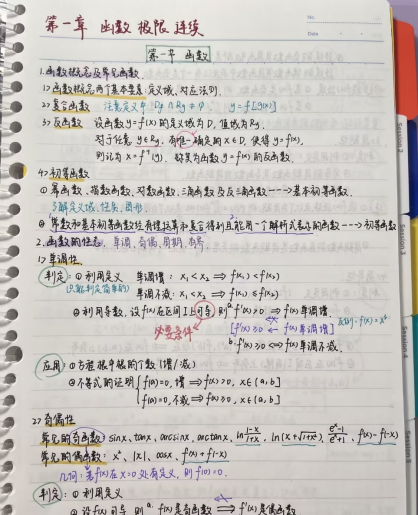 No.
Date
第一章 函数 极限 连续
第一节 函数
1.函数概念及常见函数
1>函数概念两个基本要素:定义域、对应法则.
2>复合函数 注意定义中 Df ∩ Rg ≠ ∅ y=f[g(x)]
3>反函数 设函数y=f(x)的定义域为D,值域为Ry.
对于任意 y∈Ry,有唯一确定的 x∈D,使得 y=f(x),
则记为 x=f⁻¹(y) 称其为函数y=f(x)的反函数.
4>初等函数
①幂函数、指数函数、对数函数、三角函数及反三角函数--->基本初等函数.
了解定义域、性质、图形
②常数和基本初等函数经有限次 和复合得到且能用一个解析式表示的函数--->初等函数
2.函数的性态 单调、奇偶、周期、有界
1>单调性
判定:①利用定义 单调增: x₁<x₂ ⇒ f(x₁)<f(x₂)
(只能判定简单的) 单调不减: x₁<x₂ ⇒ f(x₁)≤f(x₂)
②利用导数,设f(x)在区间I上可导,则 a.f'(x)>0 ⇒ f(x)单调增.
必要条件 [f'(x)≥0 ⇐ f(x)单调增] 反例:f(x)=x³
b.f'(x)≥0 ⇔ f(x)单调不减.
应用:①方程根中根的个数(增/减)
②不等式的证明 f(a)=0,增 ⇒ f(x)>0, x∈(a,b]
f(a)=0,不减 ⇒ f(x)≥0, x∈[a,b]
2>奇偶性
常见的奇函数: sinx, tanx, arcsinx, arctanx, ln(1-x)/(1+x), ln(x+√(1+x²)), (eˣ-1)/(eˣ+1), f(x)-f(-x)
常见的偶函数: x², |x|, cosx, f(x)+f(-x)
几何:若f(x)在x=0处有定义,则f(0)=0.
判定:①利用定义
②设f(x)可导,则 a.f(x)是奇函数 ⇒ f'(x)是偶函数
Session 2
Session 3
Session 4